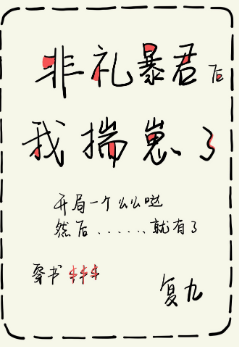 非礼暴君后
我揣崽了
开局一个么么哒
然后......就有了
穿书 $$$
复九